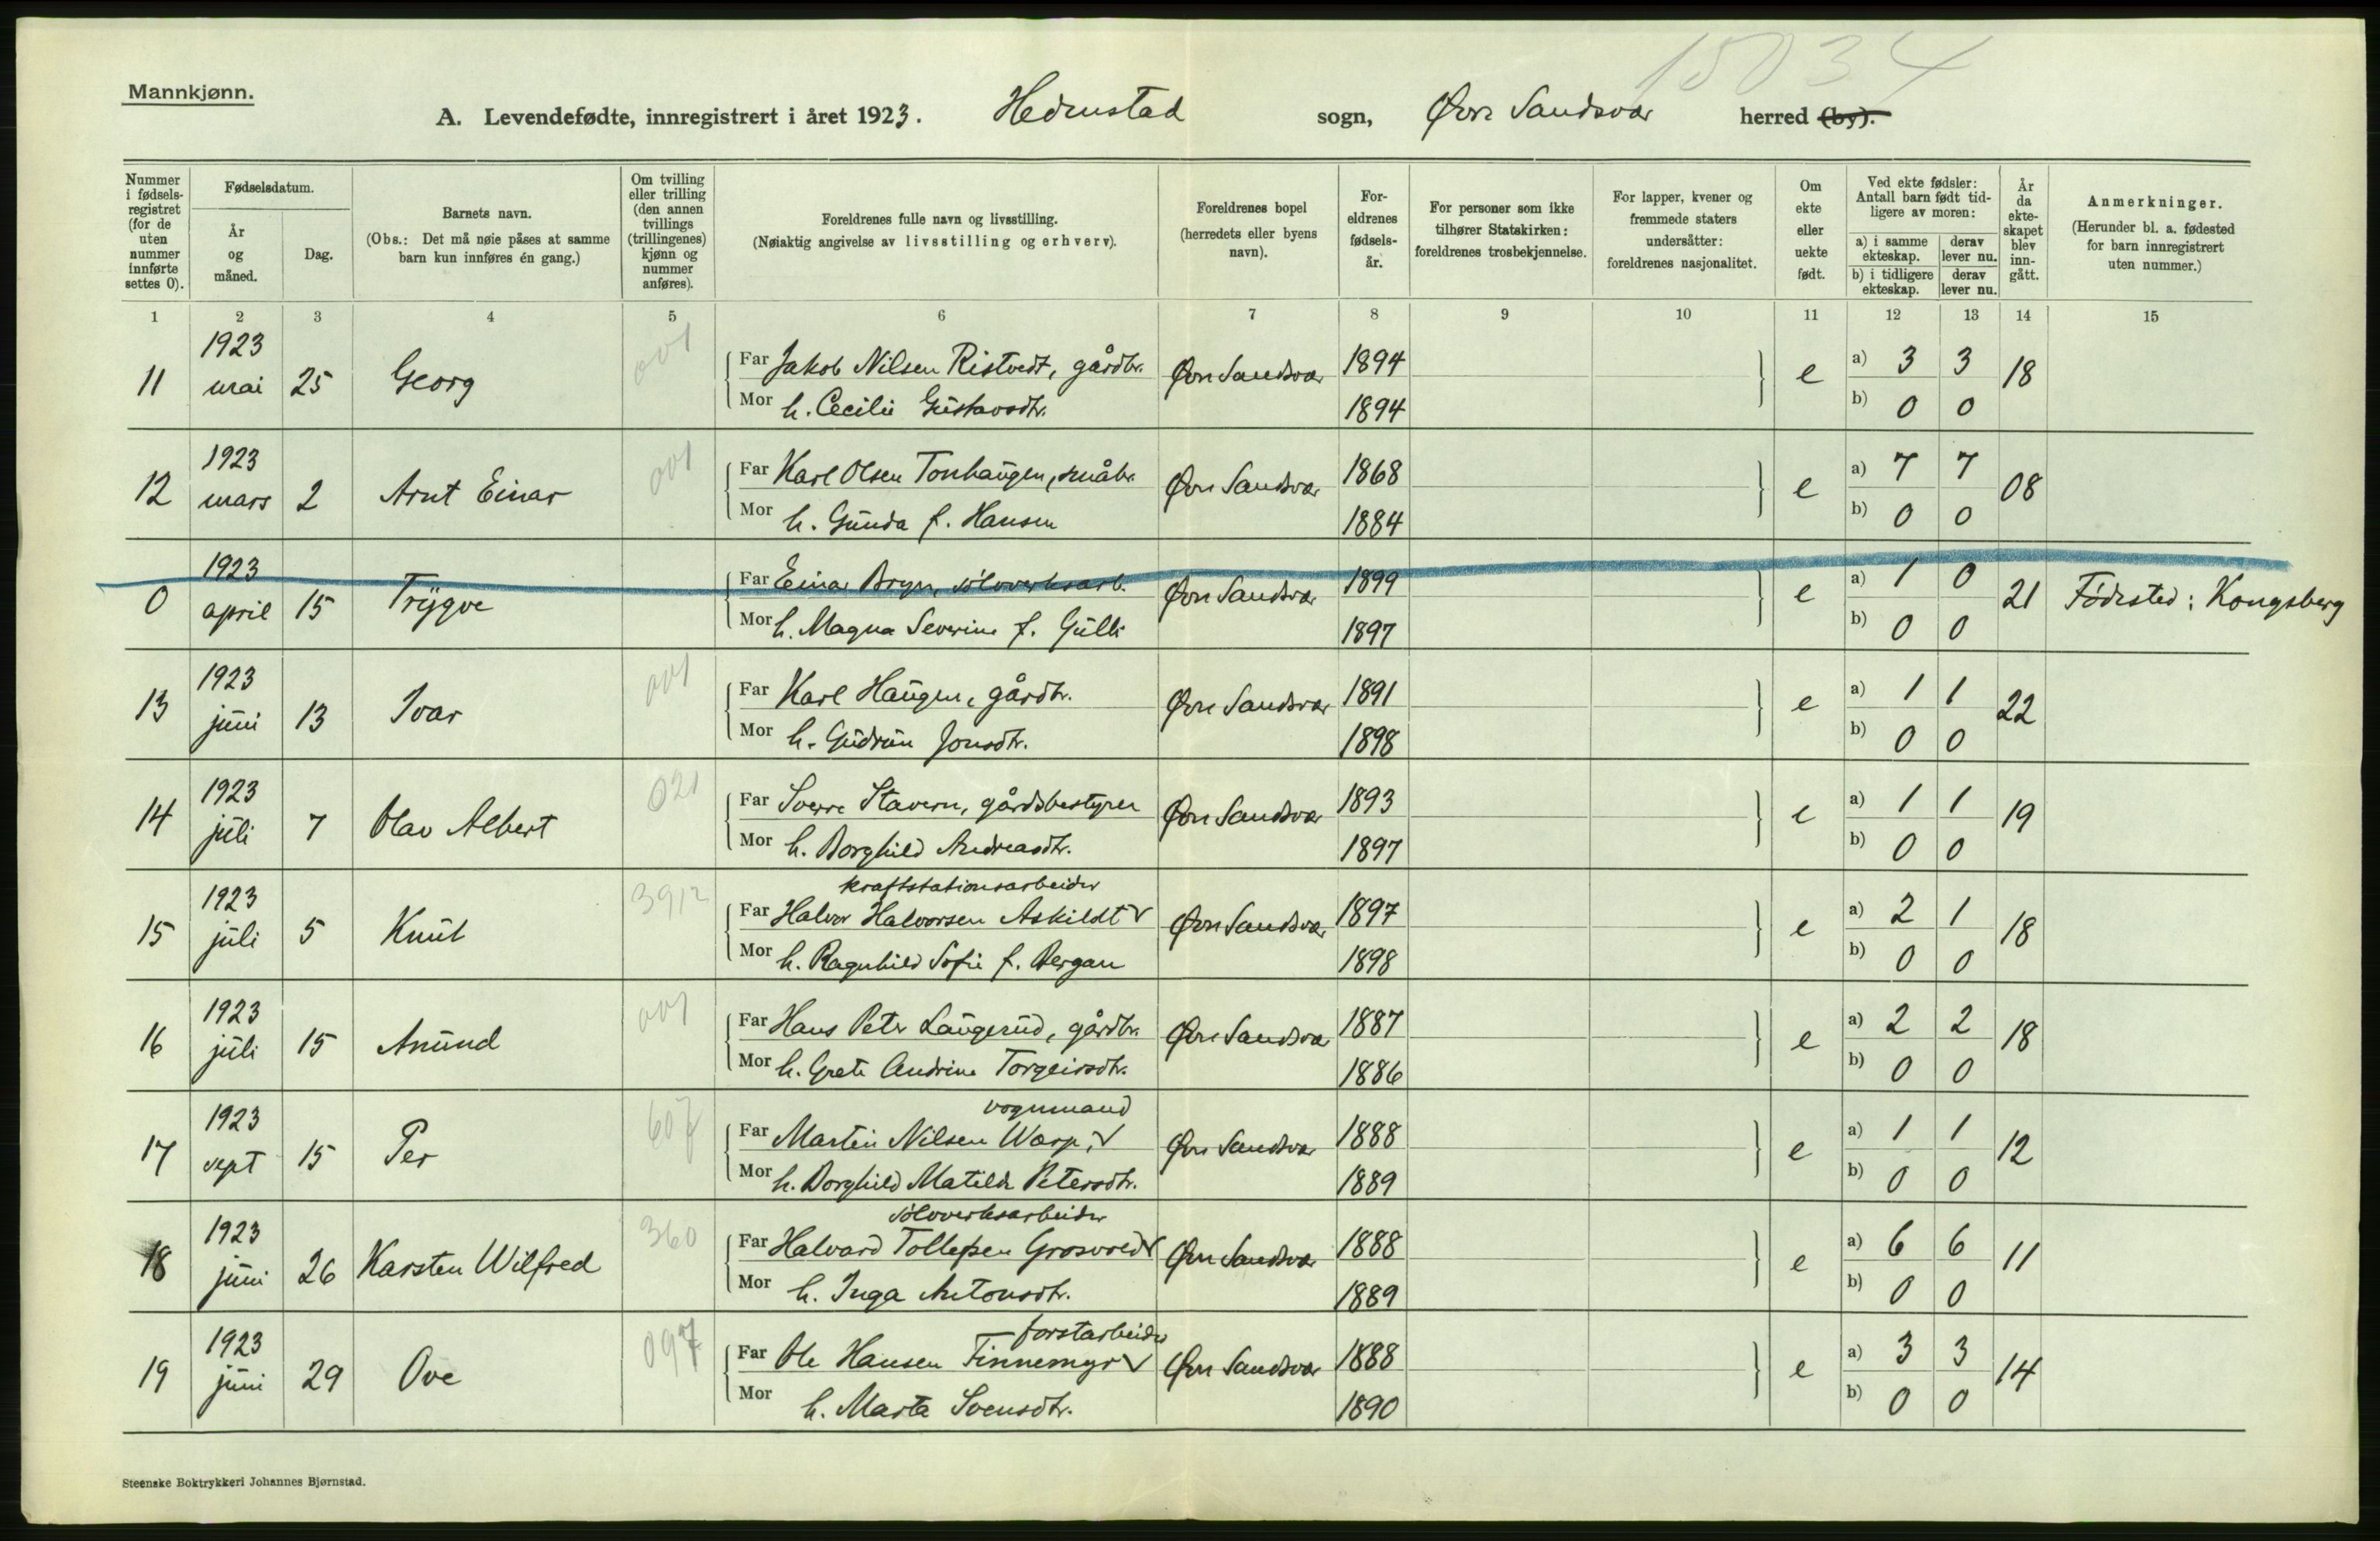 15034
Mannkjønn.
A. Levendefødte, innregistrert i året 1923. Hedenstad sogn, Øvre Sandsvær herred (by).
Nummer i fødselsregistret (for de uten nummer innførte settes 0).
Fødselsdatum.
År og måned.
Dag.
Barnets navn.
(Obs.: Det må nøie påses at samme barn kun innføres én gang.)
Om tvilling eller trilling (den annen tvillings (trillingenes) kjønn og nummer anføres).
Foreldrenes fulle navn og livsstilling.
(Nøiaktig angivelse av livsstilling og erhverv).
Foreldrenes bopel (herredets eller byens navn).
Foreldrenes fødselsår.
For personer som ikke tilhører Statskirken: foreldrenes trosbekjennelse.
For lapper, kvener og fremmede staters undersåtter: foreldrenes nasjonalitet.
Om ekte eller uekte født.
Ved ekte fødsler: Antall barn født tidligere av moren:
a) i samme ekteskap. derav lever nu.
b) i tidligere ekteskap. derav lever nu.
År da ekteskapet blev inngått.
Anmerkninger.
(Herunder bl. a. fødested for barn innregistrert uten nummer.)
1 2 3 4 5 6 7 8 9 10 11 12 13 14 15
11 1923 mai 25 Georg 001 Far Jakob Nilsen Ristvedt, gårdbr. Øvre Sandsvær 1894 e a) 3 3 18
Mor h. Cecilie Gustavsdtr. 1894 b) 0 0
12 1923 mars 2 Arnt Einar 001 Far Karl Olsen Tonhaugen, småbr. Øvre Sandsvær 1868 e a) 7 7 08
Mor h. Gunda f. Hansen 1884 b) 0 0
0 1923 april 15 Trygve Far Einar Bryn, sölvverksarb. Øvre Sandsvær 1899 e a) 1 0 21 Födested: Kongsberg
Mor h. Magna Severine f. Gulli 1897 b) 0 0
13 1923 juni 13 Ivar 001 Far Karl Haugen, gårdbr. Øvre Sandsvær 1891 e a) 1 1 22
Mor h. Gudrun Jonsdtr. 1898 b) 0 0
14 1923 juli 7 Olav Albert 021 Far Sverre Stavern, gårdsbestyrer Øvre Sandsvær 1893 e a) 1 1 19
Mor h. Borghild Andreasdtr. 1897 b) 0 0
kraftstationsarbeider
15 1923 juli 5 Knut 3912 Far Halvor Halvorsen Askildt V Øvre Sandsvær 1897 e a) 2 1 18
Mor h. Ragnhild Sofie f. Bergan 1898 b) 0 0
16 1923 juli 15 Anund 001 Far Hans Peter Laugerud, gårdbr. Øvre Sandsvær 1887 e a) 2 2 18
Mor h. Grete Andrine Torgeirsdtr. 1886 b) 0 0
vognmand
17 1923 sept 15 Per 607 Far Martin Nilsen Warp, V Øvre Sandsvær 1888 e a) 1 1 12
Mor h. Borghild Matilde Petersdtr. 1889 b) 0 0
sölvverksarbeider
18 1923 juni 26 Karsten Wilfred 360 Far Halvard Tollefsen Grosvold V Øvre Sandsvær 1888 e a) 6 6 11
Mor h. Inga Antonsdtr. 1889 b) 0 0
forstarbeider
19 1923 juni 29 Ove 097 Far Ole Hansen Finnemyr V Øvre Sandsvær 1888 e a) 3 3 14
Mor h. Marta Svensdtr. 1890 b) 0 0
Steenske Boktrykkeri Johannes Bjørnstad.